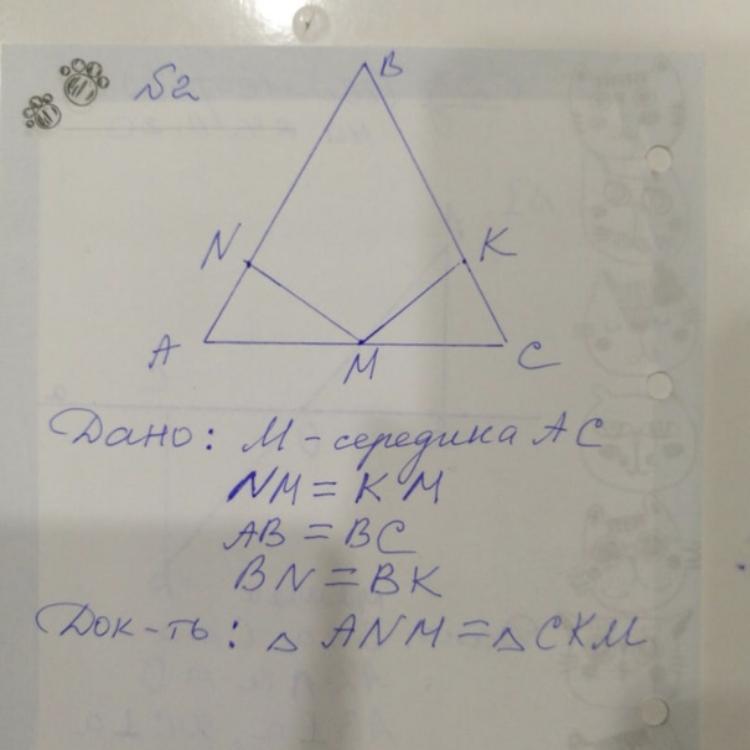 №2
B
N
K
A
M
C
Дано: М - середина АС
NM = KM
AB = BC
BN = BK
Док-ть: △ ANM = △ CKM